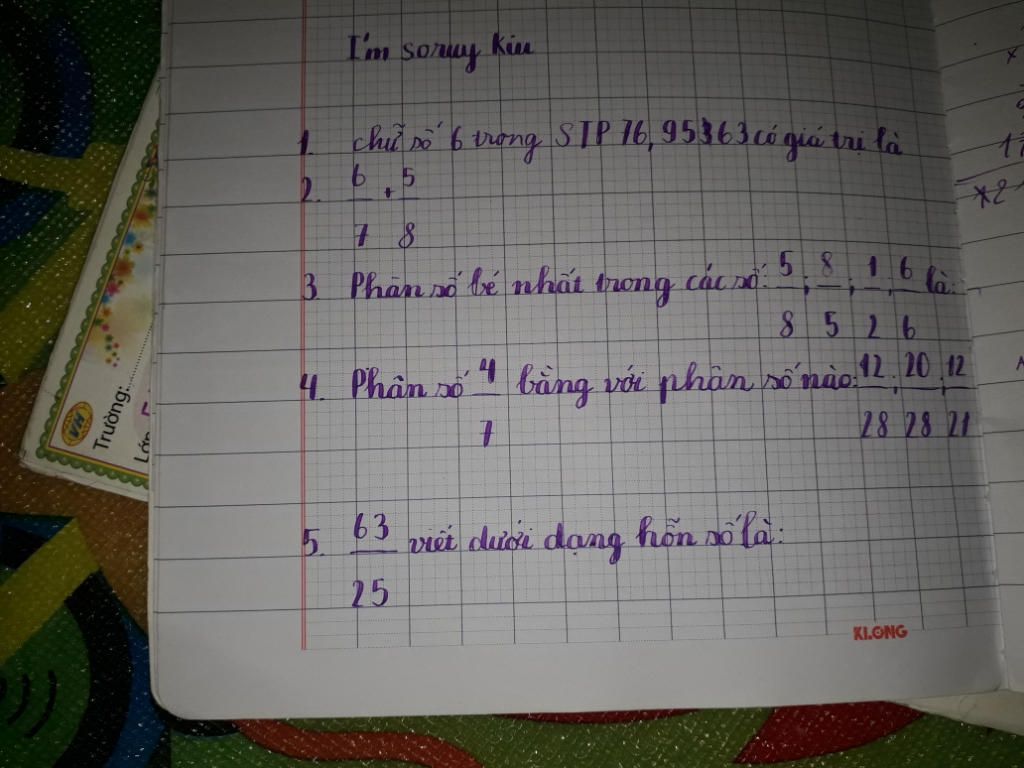 I'm soruy Kiu
1. chữ số 6 trong STP 76,95363 có giá trị là
2. 6/7 + 5/8
3 Phân số bé nhất trong các số: 5/8, 8/5, 1/2, 6/6 là:
4. Phân số 4/7 bằng với phân số nào: 12/28, 20/28, 12/21
5. 63/25 viết dưới dạng hỗn số là:
KLONG
Trường:
Lớp
VH